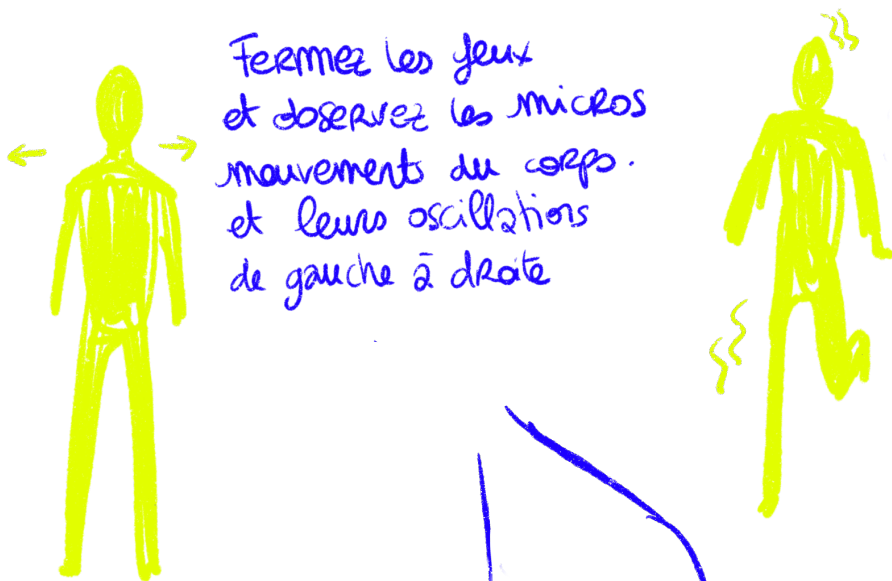 Fermez les yeux
et observez les micros
mouvements du corps.
et leurs oscillations
de gauche à droite